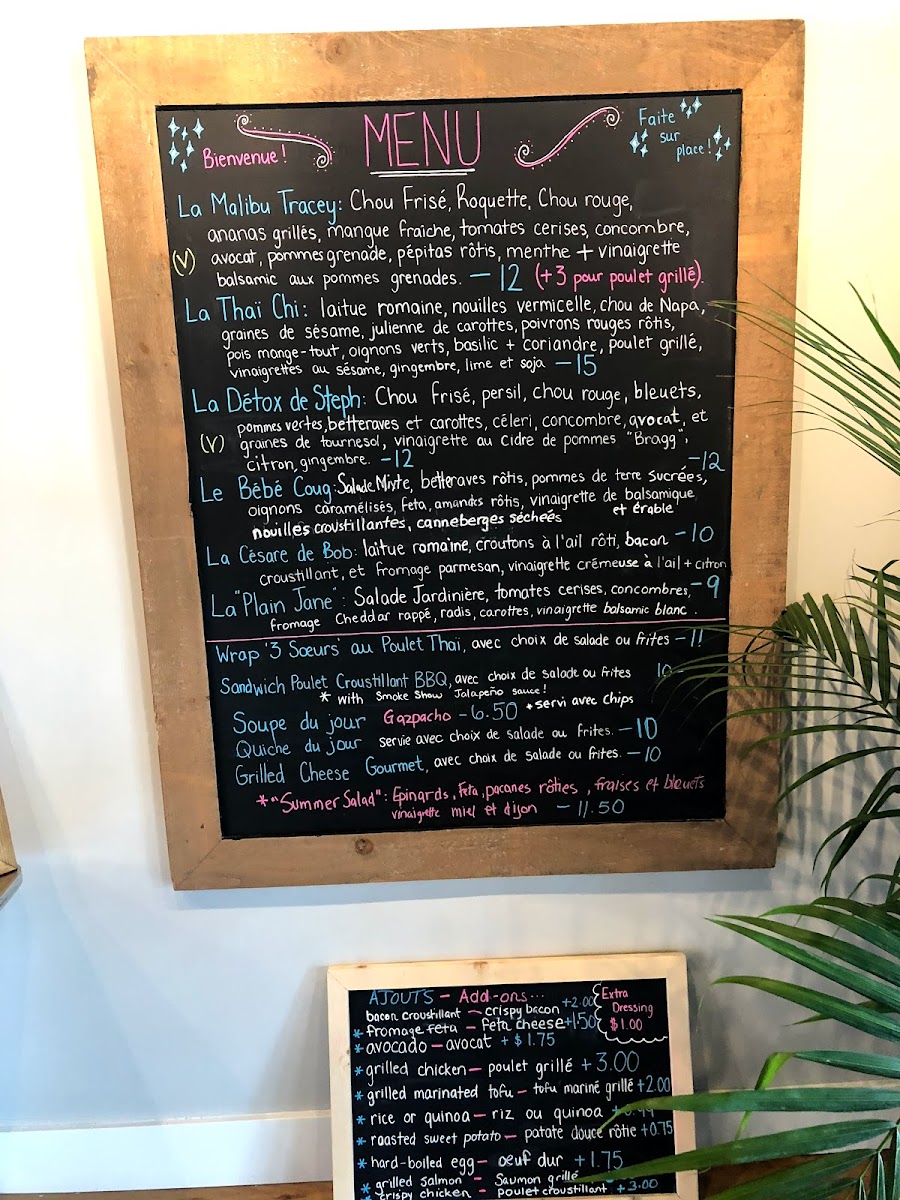 Bienvenue!
MENU
Faite
sur
place!
La Malibu Tracey: Chou Frisé, Roquette, Chou rouge,
ananas grillés, mangue fraîche, tomates cerises, concombre,
(V) avocat, pommes grenade, pépitas rôtis, menthe + vinaigrette
balsamic aux pommes grenades. — 12 (+3 pour poulet grillé).
La Thaï Chi: laitue romaine, nouilles vermicelle, chou de Napa,
graines de sésame, julienne de carottes, poivrons rouges rôtis,
pois mange-tout, oignons verts, basilic + coriandre, poulet grillé,
vinaigrettes au sésame, gingembre, lime et soja — 15
La Détox de Steph: Chou Frisé, persil, chou rouge, bleuets,
pommes vertes, betteraves et carottes, céleri, concombre, avocat, et
(V) graines de tournesol, vinaigrette au cidre de pommes "Bragg",
citron, gingembre. — 12
— 12
Le Bébé Coug: Salade Mixte, betteraves rôtis, pommes de terre sucrées,
oignons caramélisés, feta, amandes rôtis, vinaigrette de balsamique
et érable
nouilles croustillantes, canneberges séchées
La Césare de Bob: laitue romaine, croutons à l'ail rôti, bacon — 10
croustillant, et fromage parmesan, vinaigrette crémeuse à l'ail + citron
La "Plain Jane": Salade Jardinière, tomates cerises, concombres, — 9
fromage Cheddar rappé, radis, carottes, vinaigrette balsamic blanc.
Wrap '3 Sœurs' au Poulet Thaï, avec choix de salade ou frites — 11
Sandwich Poulet Croustillant BBQ, avec choix de salade ou frites 10
* with Smoke Show Jalapeño sauce!
Soupe du jour Gazpacho — 6.50 * servi avec chips
Quiche du jour servie avec choix de salade ou frites. — 10
Grilled Cheese Gourmet, avec choix de salade ou frites. — 10
* "Summer Salad": Epinards, Feta, pacanes rôties, fraises et bleuets
vinaigrette miel et dijon — 11.50
AJOUTS — Add-ons...
Extra
Dressing
$1.00
bacon croustillant — crispy bacon +2.00
* fromage feta — feta cheese +1.50
* avocado — avocat + $1.75
* grilled chicken — poulet grillé +3.00
* grilled marinated tofu — tofu mariné grillé +2.00
* rice or quinoa — riz ou quinoa
* roasted sweet potato — patate douce rôtie +0.75
* hard-boiled egg — oeuf dur +1.75
* grilled salmon — Saumon grillé
* crispy chicken — poulet croustillant +3.00